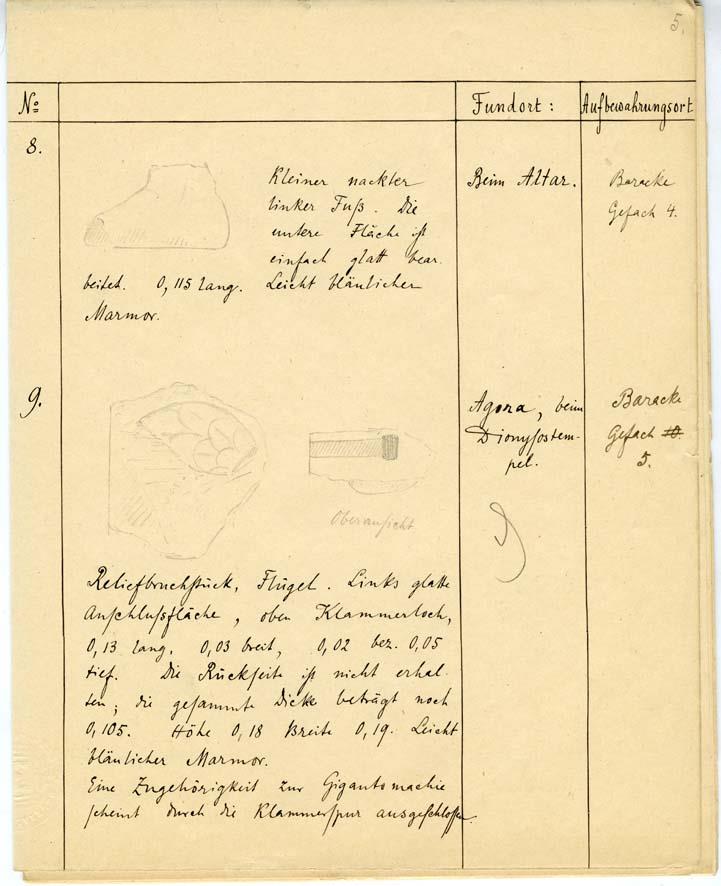 5.
No Fundort: Aufbewahrungsort
8.
Kleiner nackter
linker Fuß. Die
untere Fläche ist
einfach glatt bear-
beitet. 0,115 lang. Leicht bläulicher
Marmor.
Beim Altar.
Baracke
Gefach 4.
9.
Oberansicht
Reliefbruchstück, Flügel. Links glatte
Anschlussfläche, oben Klammerloch,
0,13 lang, 0,03 breit, 0,02 bez. 0,05
tief. Die Rückseite ist nicht erhal-
ten; die gesammte Dicke beträgt noch
0,105. Höhe 0,18 Breite 0,19. Leicht
bläulicher Marmor.
Eine Zugehörigkeit zur Gigantomachie
scheint durch die Klammerspur ausgeschlossen.
Agora, beim
Dionysostem-
pel.
Baracke
Gefach 10.
5.